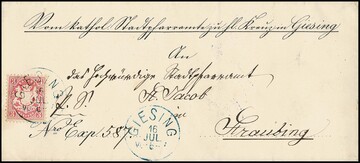 Vom kathol. Stadtpfarramte zu hl. Kreuz in Giesing
An
das hochwürdige Stadtpfarramt
St. Jacob
in
Straubing
Nro Exp. 587.
GIESING
16
JUL